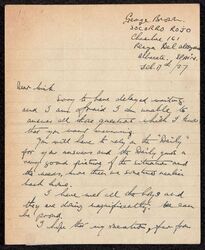 George Brown
SOCORRO ROJO
Chambre 161
Plaza Del Altozano
Albacete, SPAIN.
Feb 17th/37
Dear Mick
Sorry to have delayed writing
and I am afraid I am unable to
answer all those questions which I know
that you want answering.
You will have to rely on the "Daily"
for your answers and the Daily gets a
very good picture of the situation and
the issues, more than we ourselves realise
back here.
I have met all the boys and
they are doing magnificently. We can
be proud.
I hope that my reaction, far from